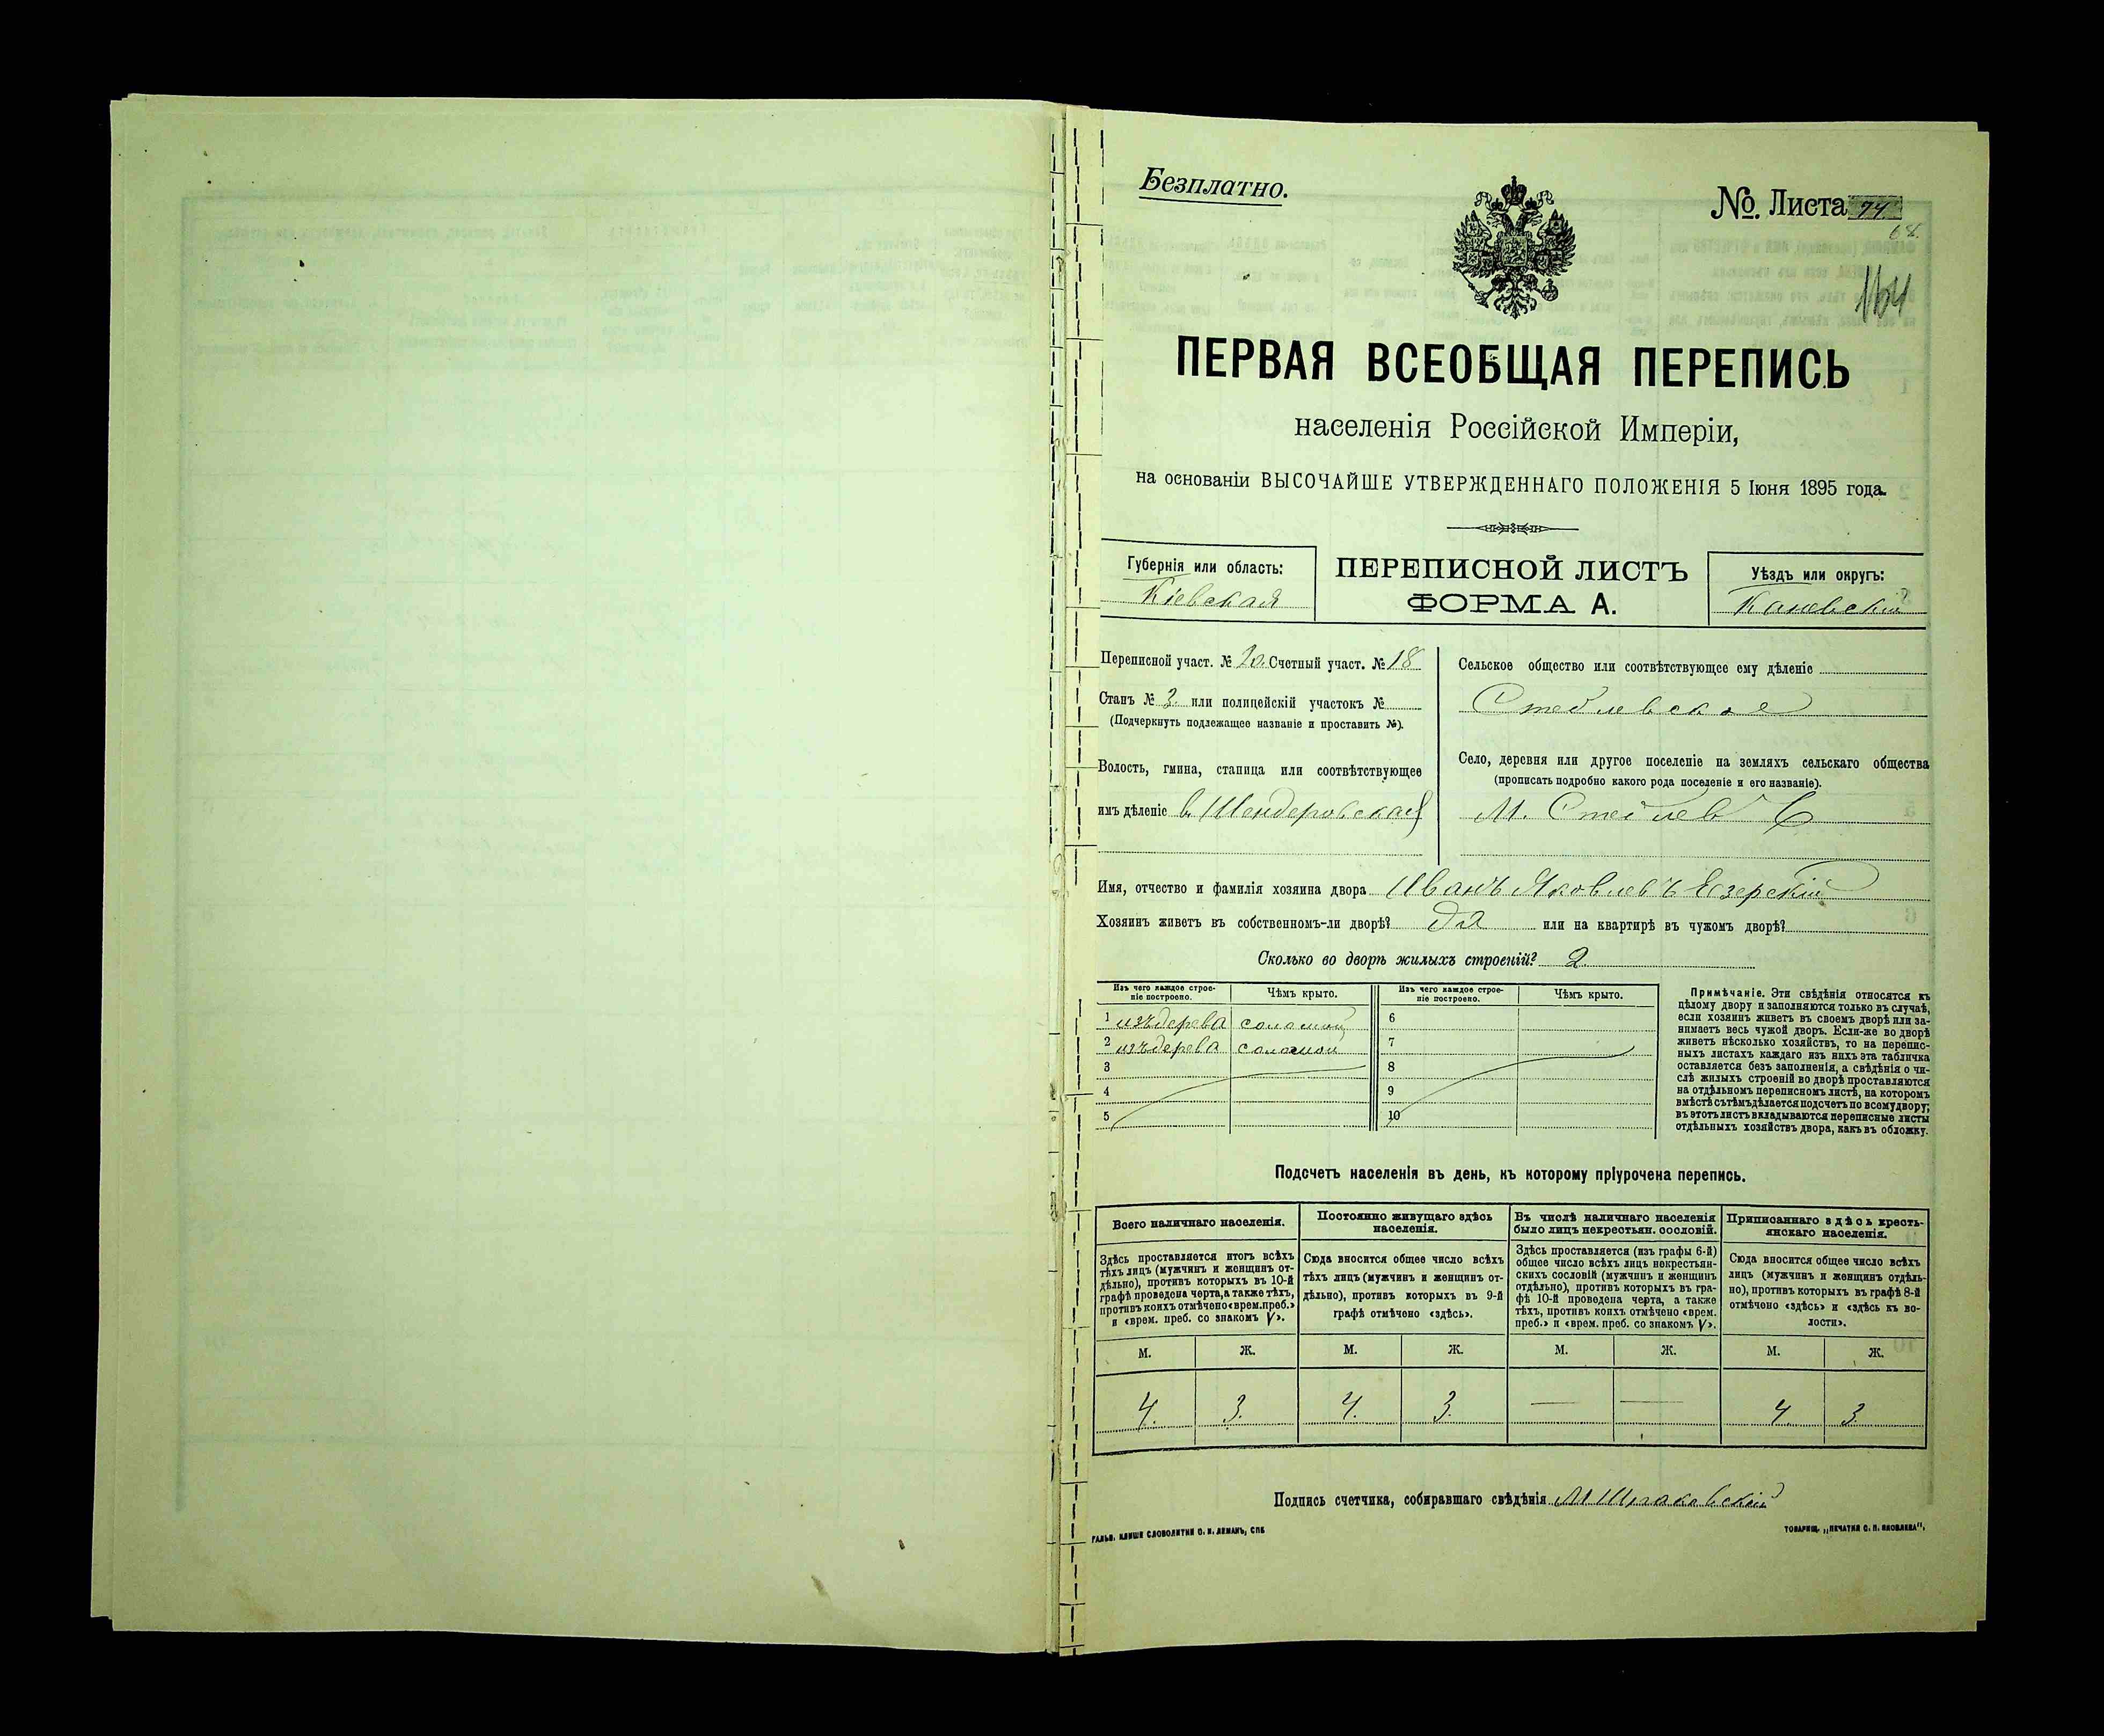 Безплатно.
№. Листа 74.
68.
164
ПЕРВАЯ ВСЕОБЩАЯ ПЕРЕПИСЬ
населенія Россійской Имперіи,
на основаніи ВЫСОЧАЙШЕ УТВЕРЖДЕННАГО ПОЛОЖЕНІЯ 5 Іюня 1895 года.
Губернія или область:
Кіевская
ПЕРЕПИСНОЙ ЛИСТЪ
ФОРМА А.
Уѣздъ или округъ:
Каневскій
Переписной участ. № Счетный участ. № 18
Станъ № 3. или полицейскій участокъ №
(Подчеркнуть подлежащее названіе и проставить №).
Волость, гмина, станица или соотвѣтствующее
имъ дѣленіе в. Шендеровская
Сельское общество или соотвѣтствующее ему дѣленіе
Стеблевское
Село, деревня или другое поселеніе на земляхъ сельскаго общества
(прописать подробно какого рода поселеніе и его названіе).
М. Стеблев
Имя, отчество и фамилія хозяина двора Иванъ Яковлевъ Езерскій
Хозяинъ живетъ въ собственномъ-ли дворѣ? да или на квартирѣ въ чужомъ дворѣ?
Сколько во дворѣ жилыхъ строеній? 2
Изъ чего каждое строе-
ніе построено.
Чѣмъ крыто.
Изъ чего каждое строе-
ніе построено.
Чѣмъ крыто.
1 изъ дерева соломой 6
2 изъ дерева соломой 7
3 8
4 9
5 10
Примѣчаніе. Эти свѣдѣнія относятся къ
цѣлому двору и заполняются только въ случаѣ,
если хозяинъ живетъ въ своемъ дворѣ или за-
нимаетъ весь чужой дворъ. Если-же во дворѣ
живетъ нѣсколько хозяйствъ, то на перепис-
ныхъ листахъ каждаго изъ нихъ эта табличка
оставляется безъ заполненія, а свѣдѣнія о чи-
слѣ жилыхъ строеній во дворѣ проставляются
на отдѣльномъ переписномъ листѣ, на которомъ
вмѣстѣ съ тѣмъ дѣлается подсчетъ по всему двору;
въ этотъ листъ вкладываются переписные листы
отдѣльныхъ хозяйствъ двора, какъ въ обложку.
Подсчетъ населенія въ день, къ которому пріурочена перепись.
Всего наличнаго населенія.
Здѣсь проставляется итогъ всѣхъ
тѣхъ лицъ (мужчинъ и женщинъ от-
дѣльно), противъ которыхъ въ 10-й
графѣ проведена черта, а также тѣхъ,
противъ коихъ отмѣчено «врем. преб.»
и «врем. преб. со знакомъ V».
Постоянно живущаго здѣсь
населенія.
Сюда вносится общее число всѣхъ
тѣхъ лицъ (мужчинъ и женщинъ от-
дѣльно), противъ которыхъ въ 9-й
графѣ отмѣчено «здѣсь».
Въ числѣ наличнаго населенія
было лицъ некрестьян. сословій.
Здѣсь проставляется (изъ графы 6-й)
общее число всѣхъ лицъ некрестьян-
скихъ сословій (мужчинъ и женщинъ
отдѣльно), противъ которыхъ въ гра-
фѣ 10-й проведена черта, а также
тѣхъ, противъ коихъ отмѣчено «врем.
преб.» и «врем. преб. со знакомъ V».
Приписаннаго здѣсь кресть-
янскаго населенія.
Сюда вносится общее число всѣхъ
лицъ (мужчинъ и женщинъ отдѣль-
но), противъ которыхъ въ графѣ 8-й
отмѣчено «здѣсь» и «здѣсь къ во-
лости».
М. Ж. М. Ж. М. Ж. М. Ж.
4. 3. 4. 3. — — 4 3
Подпись счетчика, собиравшаго свѣдѣнія М
ГАЛЬВ. КЛИШЕ СЛОВОЛИТНИ О. И. ЛЕМАНЪ, СПБ.
ТОВАРИЩ. „ПЕЧАТНЯ С. П. ЯКОВЛЕВА“.